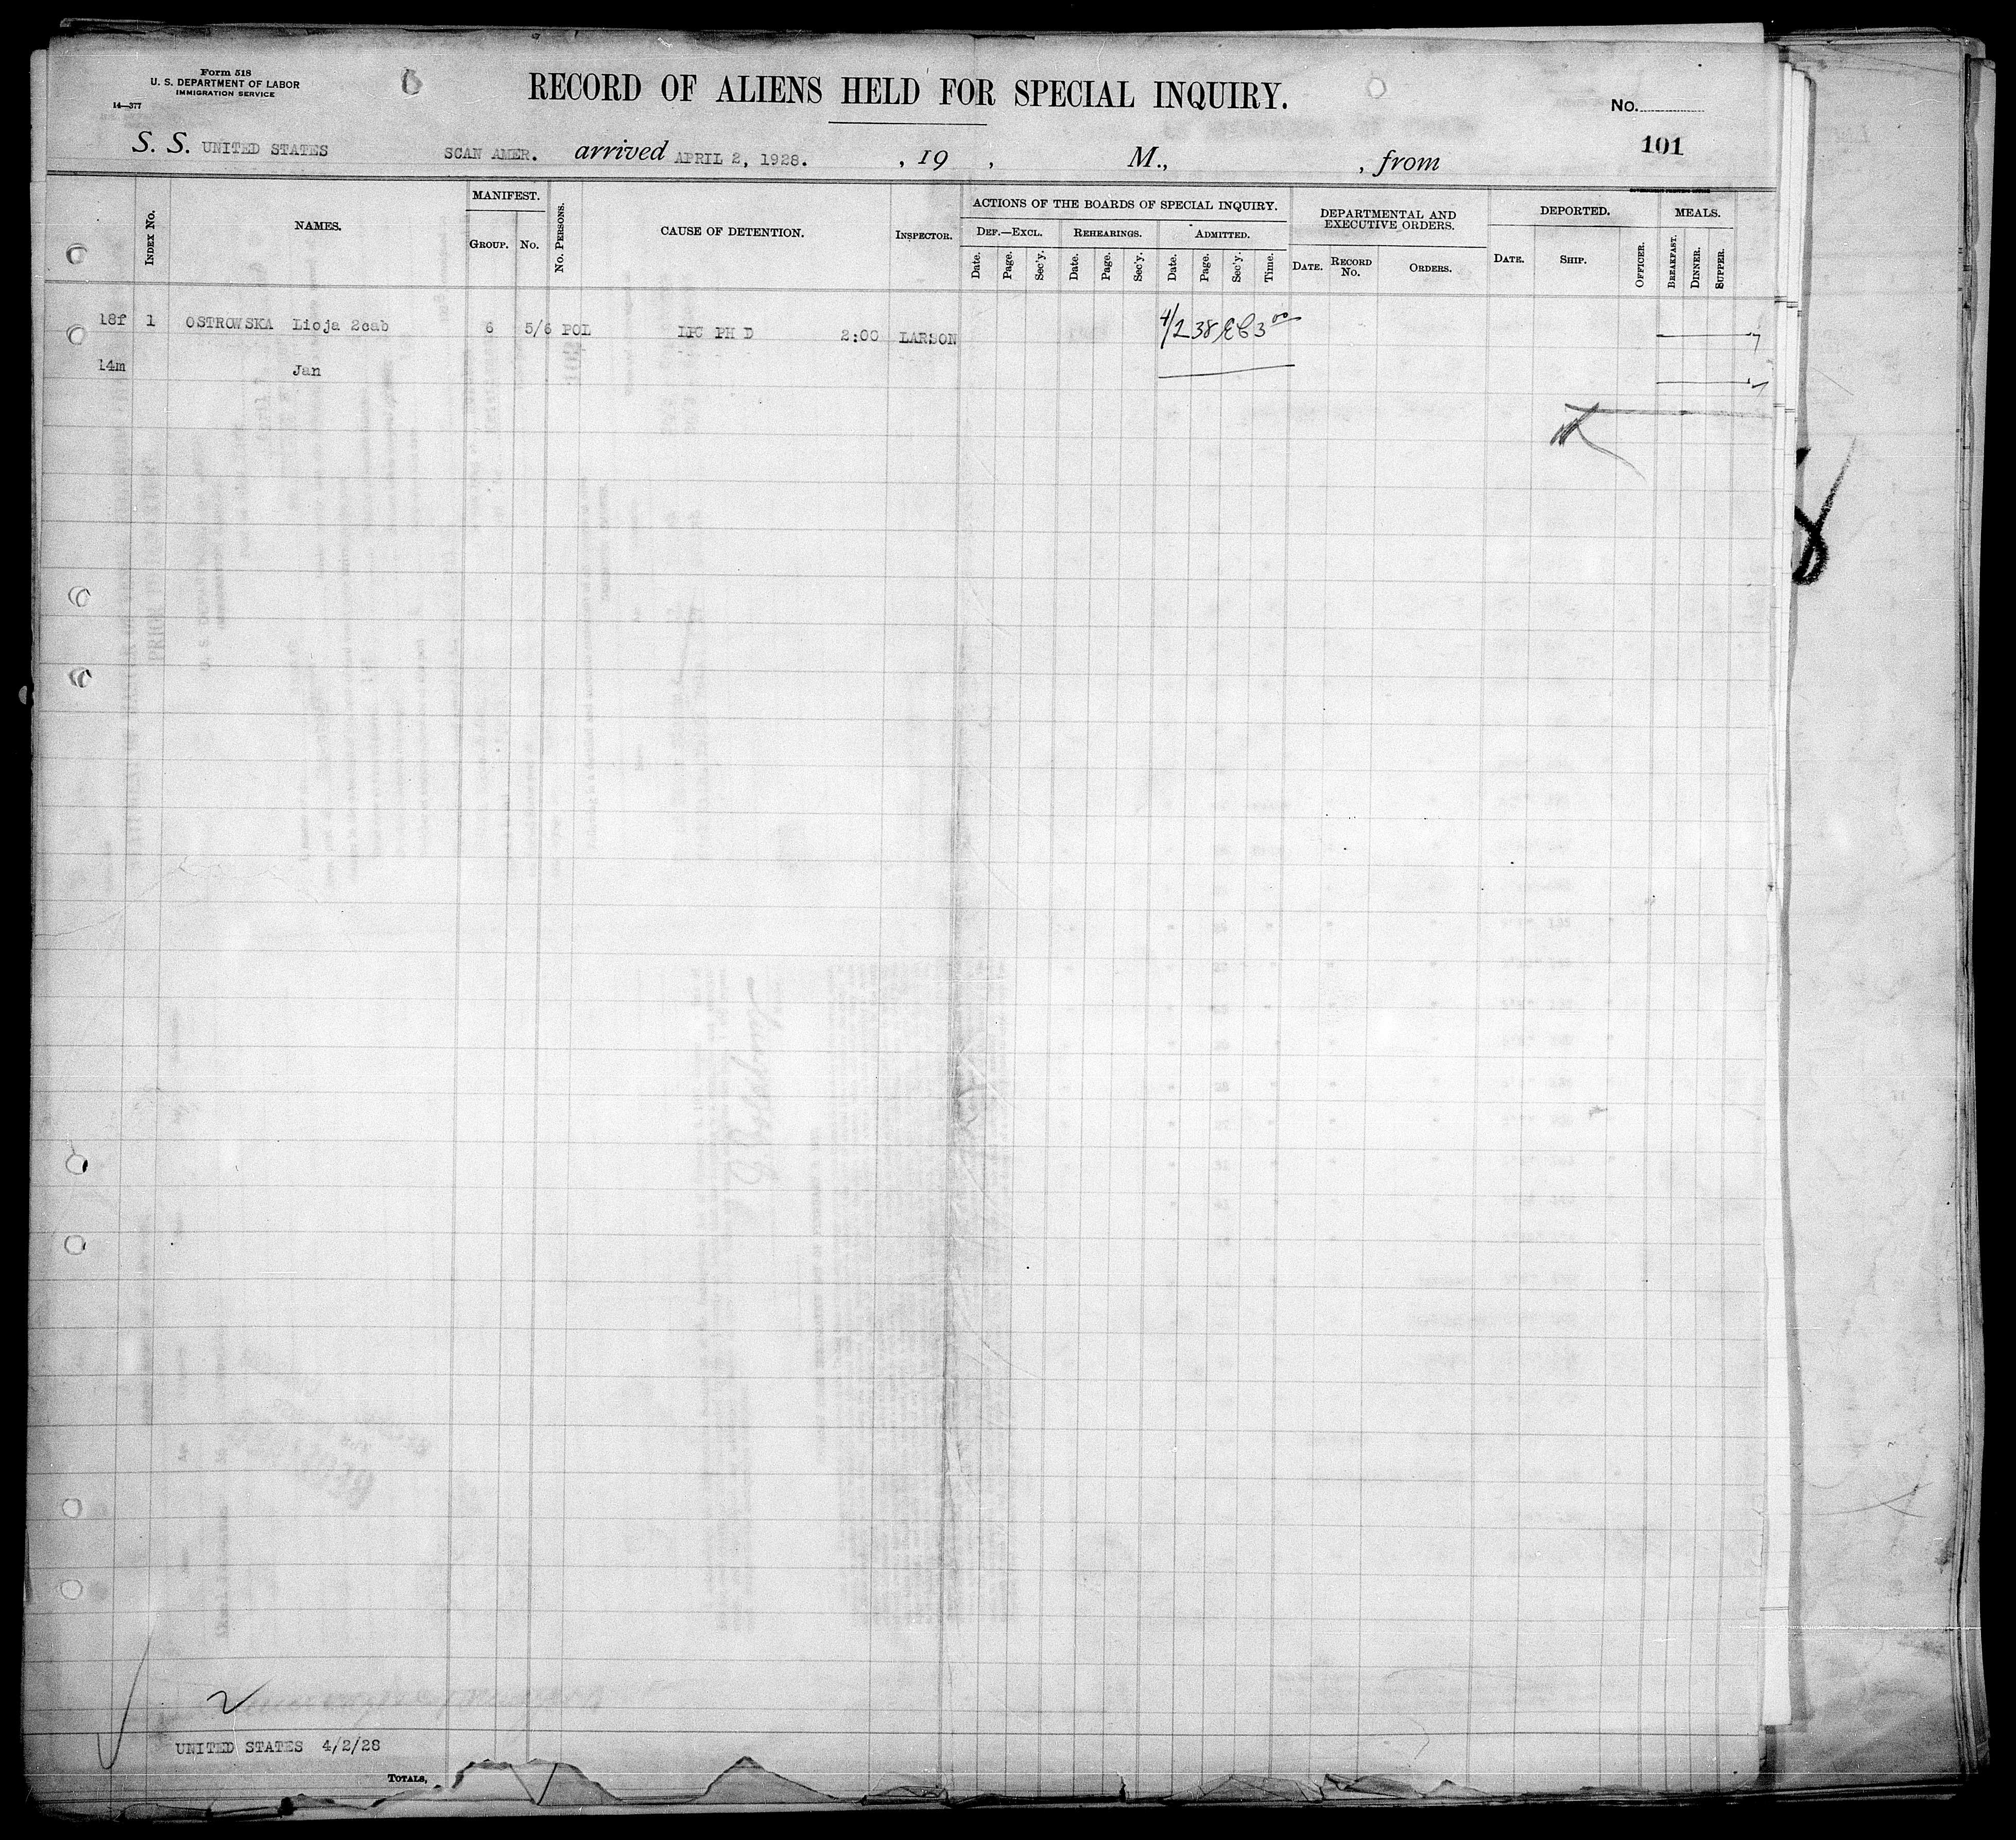 Form 518
U. S. DEPARTMENT OF LABOR
IMMIGRATION SERVICE
14—377
RECORD OF ALIENS HELD FOR SPECIAL INQUIRY.
No.
101
S. S. UNITED STATES SCAN AMER. arrived APRIL 2, 1928. , 19 , M., , from
INDEX No. NAMES. MANIFEST. GROUP. No. No. PERSONS. CAUSE OF DETENTION. INSPECTOR.
ACTIONS OF THE BOARDS OF SPECIAL INQUIRY.
DEF.—EXCL. REHEARINGS. ADMITTED.
Date. Page. Sec'y. Date. Page. Sec'y. Date. Page. Sec'y. Time.
DEPARTMENTAL AND EXECUTIVE ORDERS.
DATE. RECORD No. ORDERS.
DEPORTED.
DATE. SHIP. OFFICER.
MEALS.
BREAKFAST. DINNER. SUPPER.
18f 1 OSTROWSKA Lioja 2cab 6 5/6 POL LPC PH D 2:00 LARSON 4/2 38 3 00
14m Jan
2
UNITED STATES 4/2/28
TOTALS,